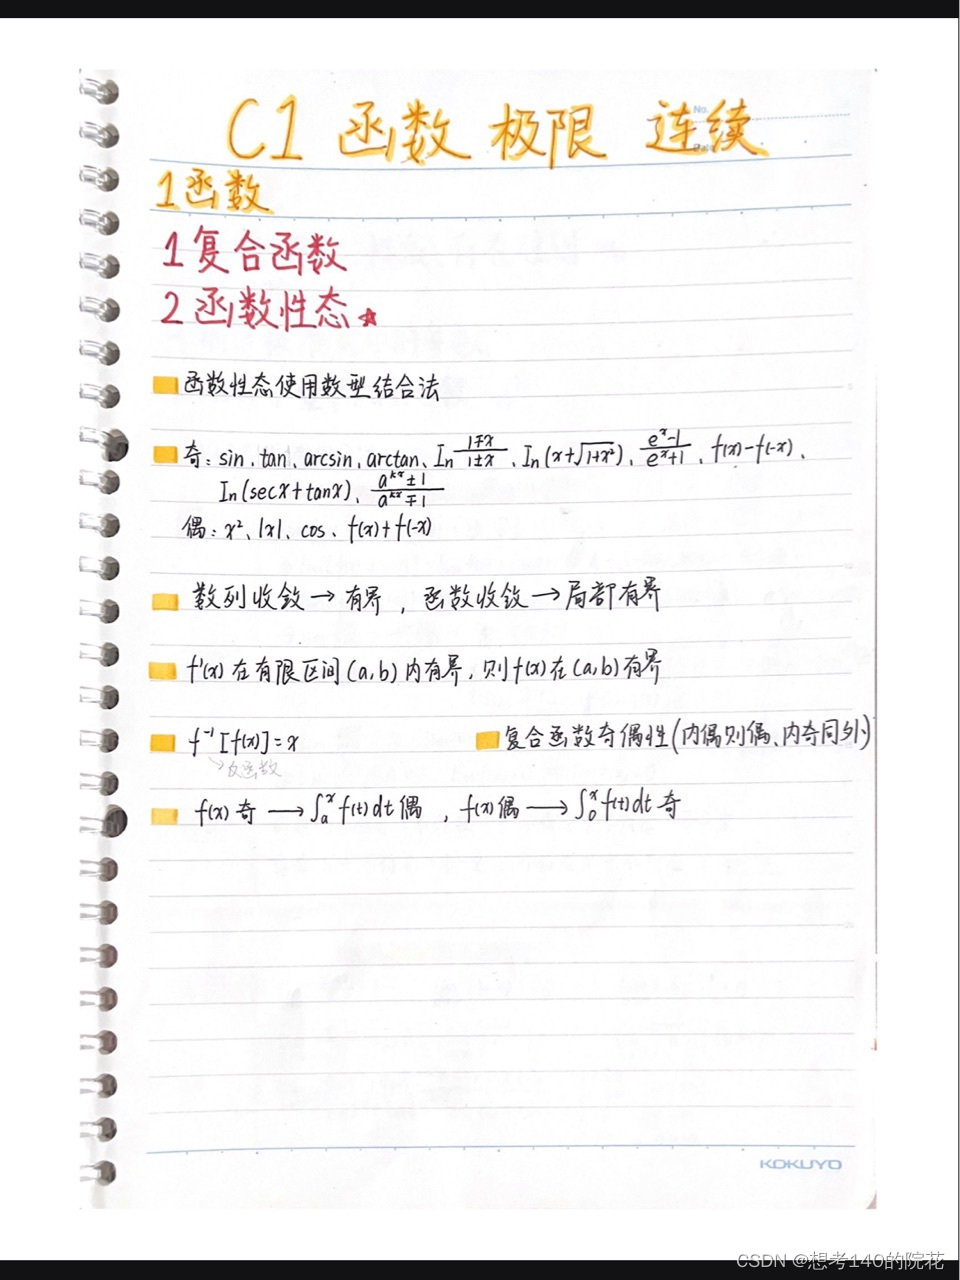 C1 函数 极限 连续
No.
Date
1函数
1复合函数
2函数性态☆
函数性态使用数型结合法
奇：sin、tan、arcsin、arctan、In (1∓x)/(1±x)、In(x+√(1+x²))、(eˣ-1)/(eˣ+1)、f(x)-f(-x)、
In(secx+tanx)、(aᵏˣ±1)/(aᵏˣ∓1)
偶：x²、|x|、cos、f(x)+f(-x)
数列收敛→有界，函数收敛→局部有界
f'(x)在有限区间(a,b)内有界，则f(x)在(a,b)有界
f⁻¹[f(x)]=x
→反函数
复合函数奇偶性(内偶则偶、内奇同外)
f(x)奇→∫ₐˣf(t)dt偶，f(x)偶→∫₀ˣf(t)dt奇
KOKUYO
CSDN @想考140的院花